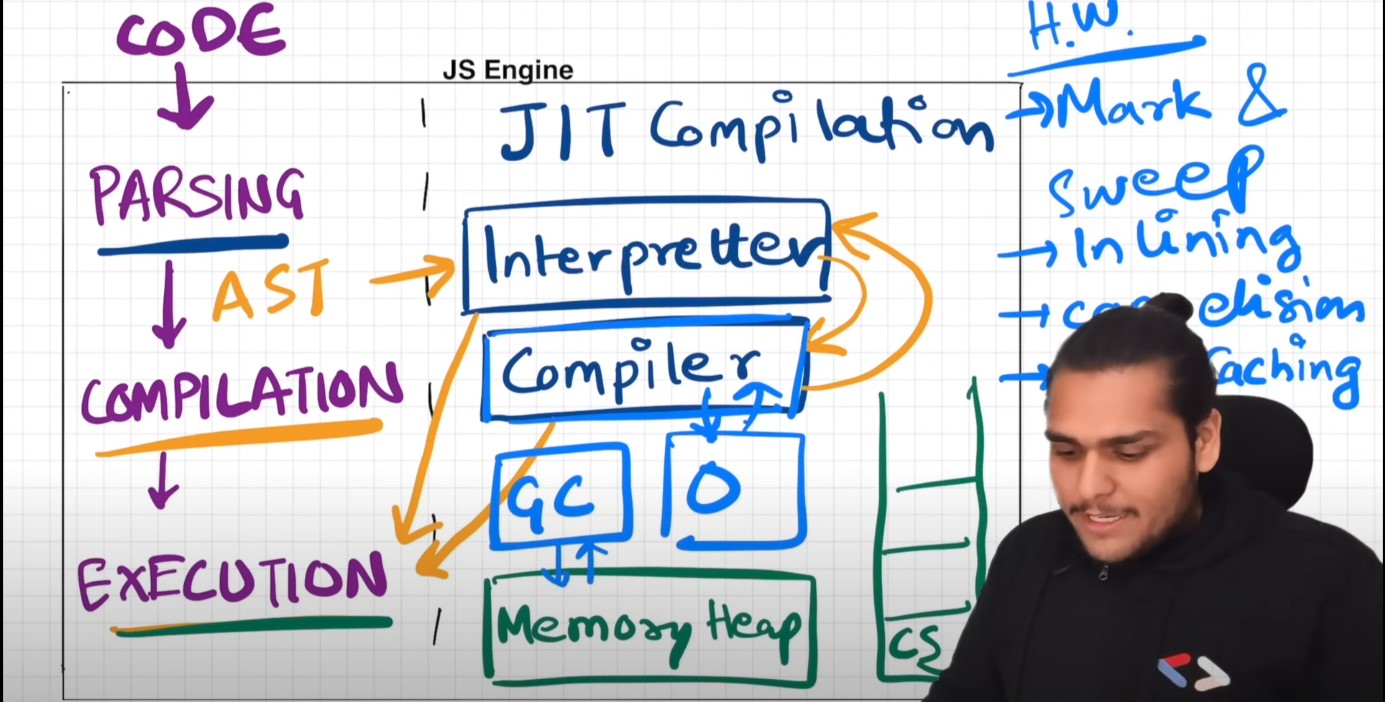 CODE
JS Engine
PARSING
AST
COMPILATION
EXECUTION
JIT Compilation
Interpretter
Compiler
GC
O
Memory Heap
CS
H.W.
→ Mark &
Sweep
→ Inlining
→ elision
→ caching